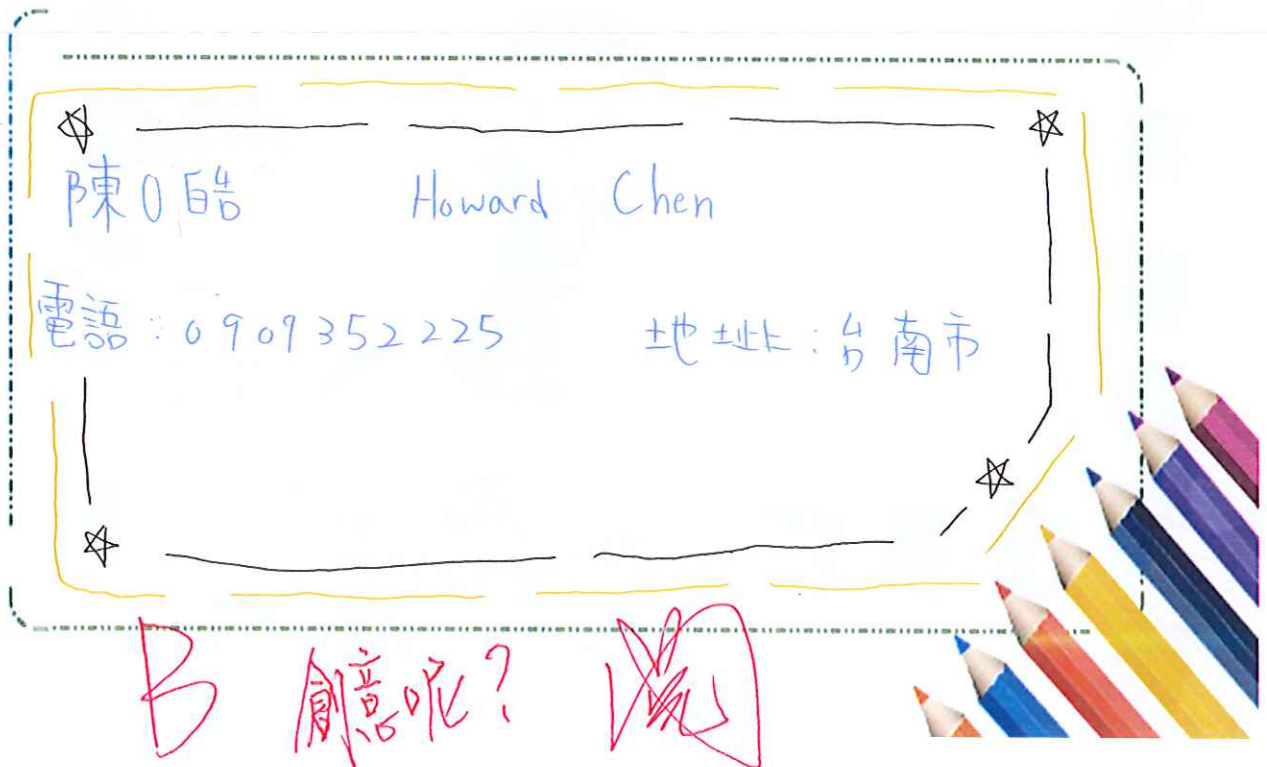 陳0皓 Howard Chen
電話:0909352225 地址:台南市
B 創意呢? 閱